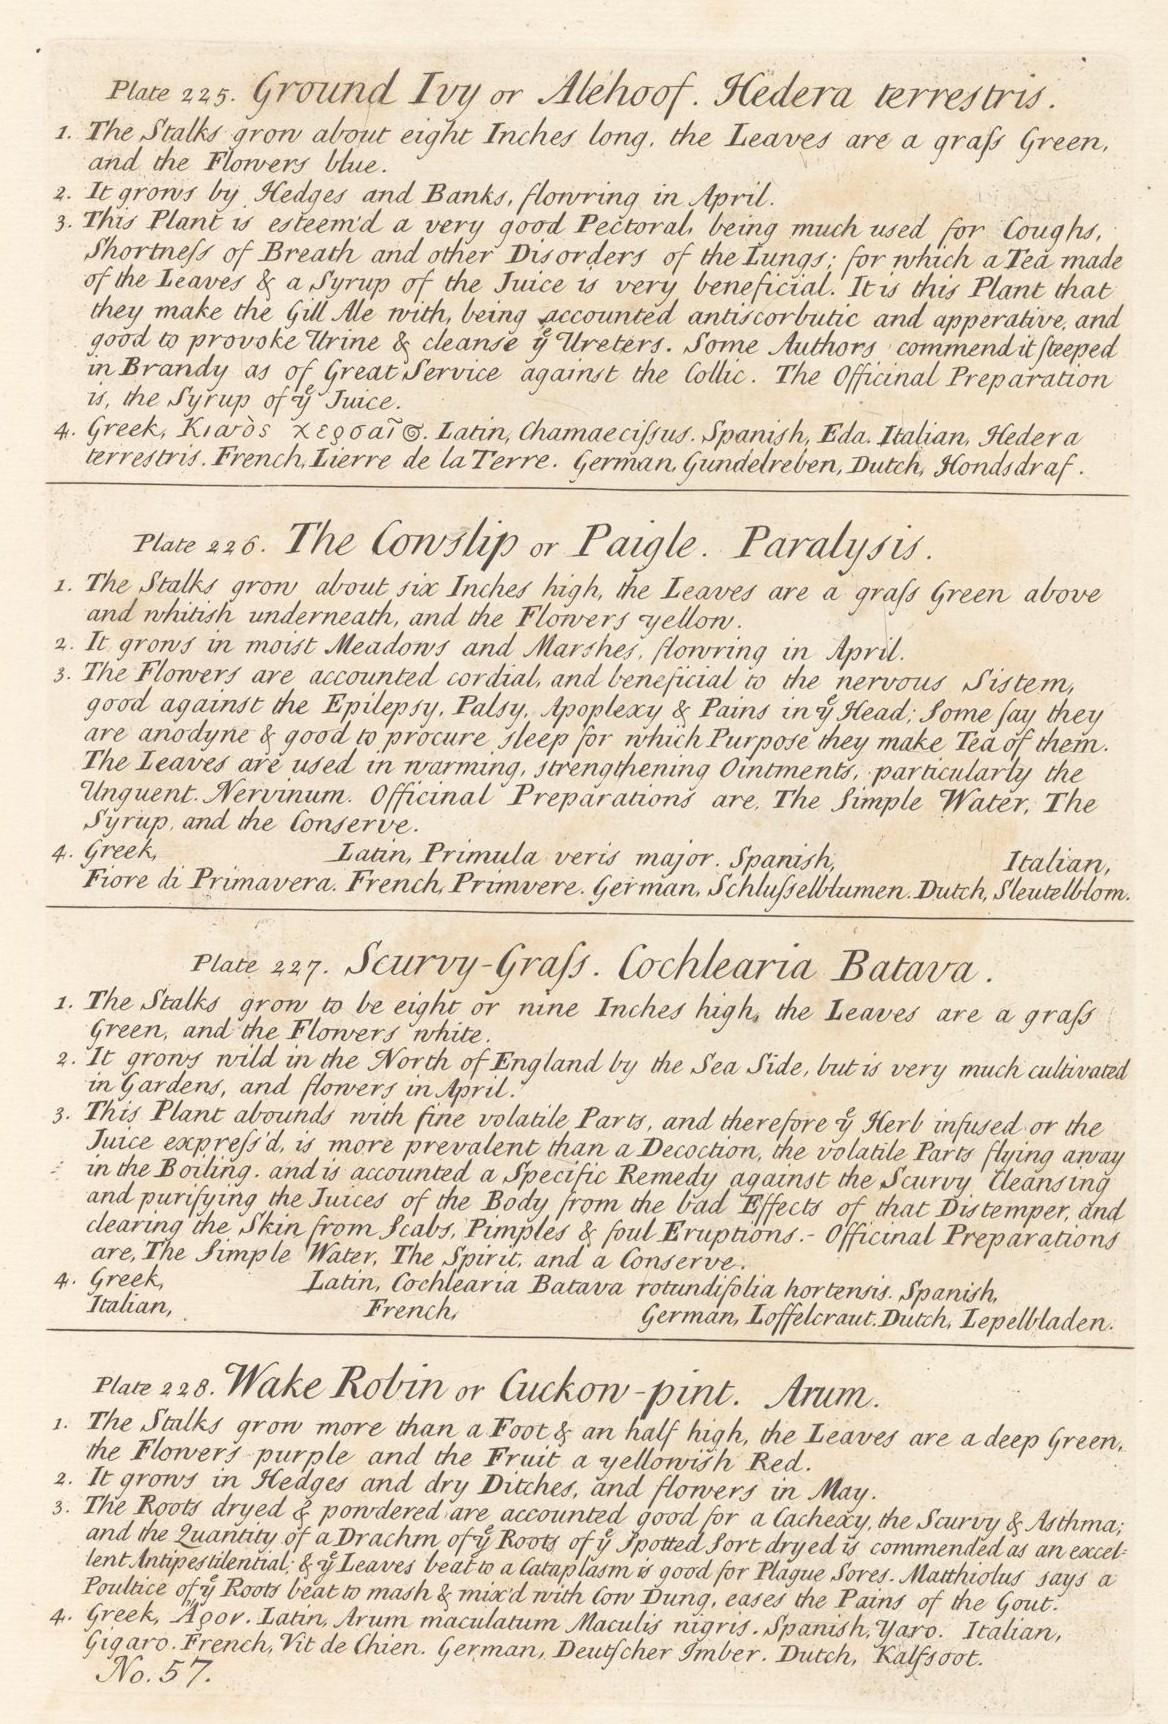 Plate 225. Ground Ivy or Alehoof. Hedera terrestris.
1. The Stalks grow about eight Inches long, the Leaves are a graſs Green,
and the Flowers blue.
2. It grows by Hedges and Banks, flowring in April.
3. This Plant is esteem'd a very good Pectoral, being much used for Coughs,
Shortneſs of Breath and other Disorders of the Lungs; for which a Tea made
of the Leaves & a Syrup of the Juice is very beneficial. It is this Plant that
they make the Gill Ale with, being accounted antiscorbutic and apperative, and
good to provoke Urine & cleanse yͤ Ureters. Some Authors commend it ſteeped
in Brandy as of Great Service against the Collic. The Officinal Preparation
is, the Syrup of yͤ Juice.
4. Greek, Κιαὸς χερσαῖος. Latin, Chamaeciſsus. Spanish, Eda. Italian, Hedera
terrestris. French, Lierre de la Terre. German, Gundelreben, Dutch, Hondsdraf.
Plate 226. The Cowslip or Paigle. Paralysis.
1. The Stalks grow about six Inches high, the Leaves are a graſs Green above
and whitish underneath, and the Flowers yellow.
2. It grows in moist Meadows and Marshes, flowring in April.
3. The Flowers are accounted cordial, and beneficial to the nervous Sistem,
good against the Epilepsy, Palsy, Apoplexy & Pains in yͤ Head; Some ſay they
are anodyne & good to procure sleep for which Purpose they make Tea of them.
The Leaves are used in warming, strengthening Ointments, particularly the
Unguent. Nervinum. Officinal Preparations are, The Simple Water, The
Syrup, and the Conserve.
4. Greek, Latin, Primula veris major. Spanish, Italian,
Fiore di Primavera. French, Primvere. German, Schluſselblumen. Dutch, Sleutelblom.
Plate 227. Scurvy-Graſs. Cochlearia Batava.
1. The Stalks grow to be eight or nine Inches high, the Leaves are a graſs
Green, and the Flowers white.
2. It grows wild in the North of England by the Sea Side, but is very much cultivated
in Gardens, and flowers in April.
3. This Plant abounds with fine volatile Parts, and therefore yͤ Herb infused or the
Juice expreſs'd, is more prevalent than a Decoction, the volatile Parts flying away
in the Boiling. and is accounted a Specific Remedy against the Scurvy Cleansing
and purifying the Juices of the Body from the bad Effects of that Distemper, and
clearing the Skin from Scabs, Pimples & foul Eruptions.- Officinal Preparations
are, The Simple Water, The Spirit, and a Conserve.
4. Greek, Latin, Cochlearia Batava rotundifolia hortensis. Spanish,
Italian, French, German, Loffelcraut. Dutch, Lepelbladen.
Plate 228. Wake Robin or Cuckow-pint. Arum.
1. The Stalks grow more than a Foot & an half high, the Leaves are a deep Green,
the Flowers purple and the Fruit a yellowish Red.
2. It grows in Hedges and dry Ditches, and flowers in May.
3. The Roots dryed & powdered are accounted good for a Cachexy, the Scurvy & Asthma;
and the Quantity of a Drachm of yͤ Roots of yͤ Spotted Sort dryed is commended as an excel-
lent Antipestilential; & yͤ Leaves beat to a Cataplasm is good for Plague Sores. Matthiolus says a
Poultice of yͤ Roots beat to mash & mix'd with Cow Dung, eases the Pains of the Gout.
4. Greek, Ἄρον. Latin, Arum maculatum Maculis nigris. Spanish, Yaro. Italian,
Gigaro. French, Vit de Chien. German, Deutſcher Imber. Dutch, Kalfsoot.
No. 57.